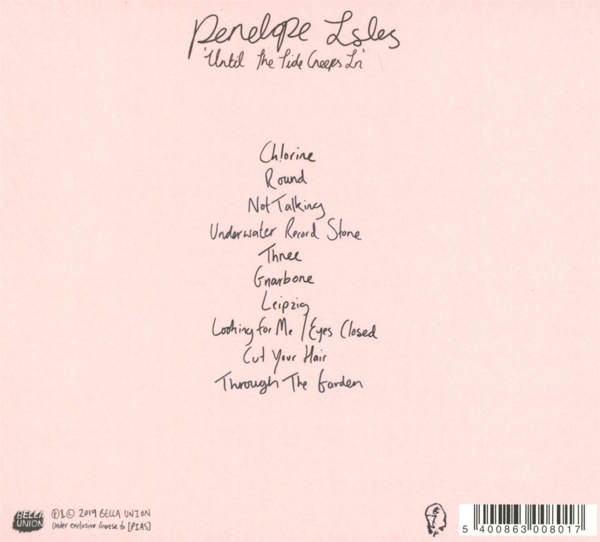 Penelope Isles
'Until The Tide Creeps In'
Chlorine
Round
Not Talking
Underwater Record Store
Three
Gnarbone
Leipzig
Looking For Me / Eyes Closed
Cut Your Hair
Through The Garden
BELLA
UNION
℗&© 2019 BELLA UNION
Under exclusive license to [PIAS]
5 400863 008017